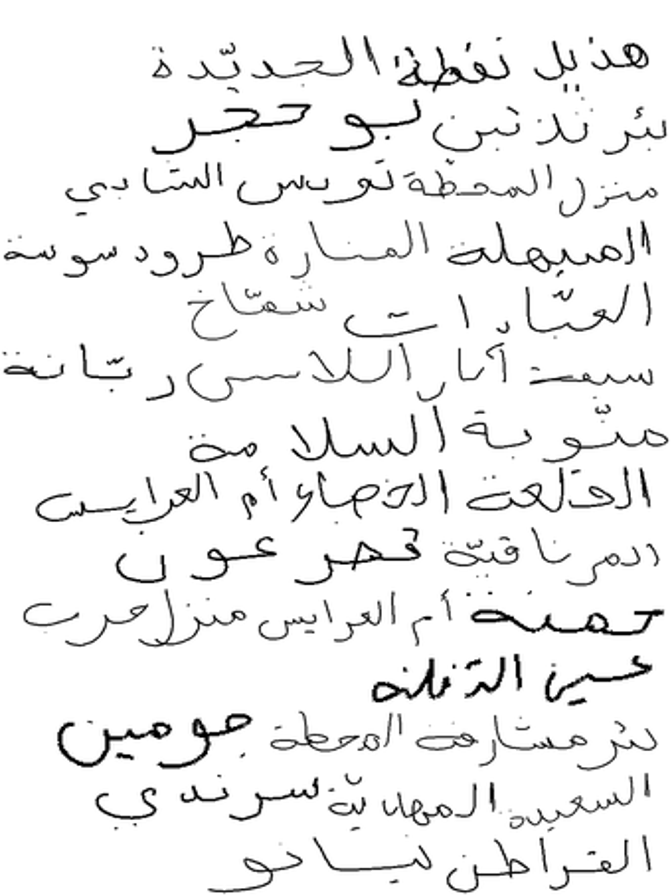 هذيل نفطة الجديّدة
بئر ثلاثين بو حجر
منزل المحطة تونس الشابي
الميهلة المنارة طرود سوسة
العبّادات شمّاخ
سبعة أبار اللاس ربّانة
منّوبة السلامة
القلعة أم العرايس
المرناقيّة قصر عون
حمنة أم العرايس منزل حرب
عين
بئر مشارقة المحطة جومين
السعيدة المهاديّة سرندي
القراطن ليانو